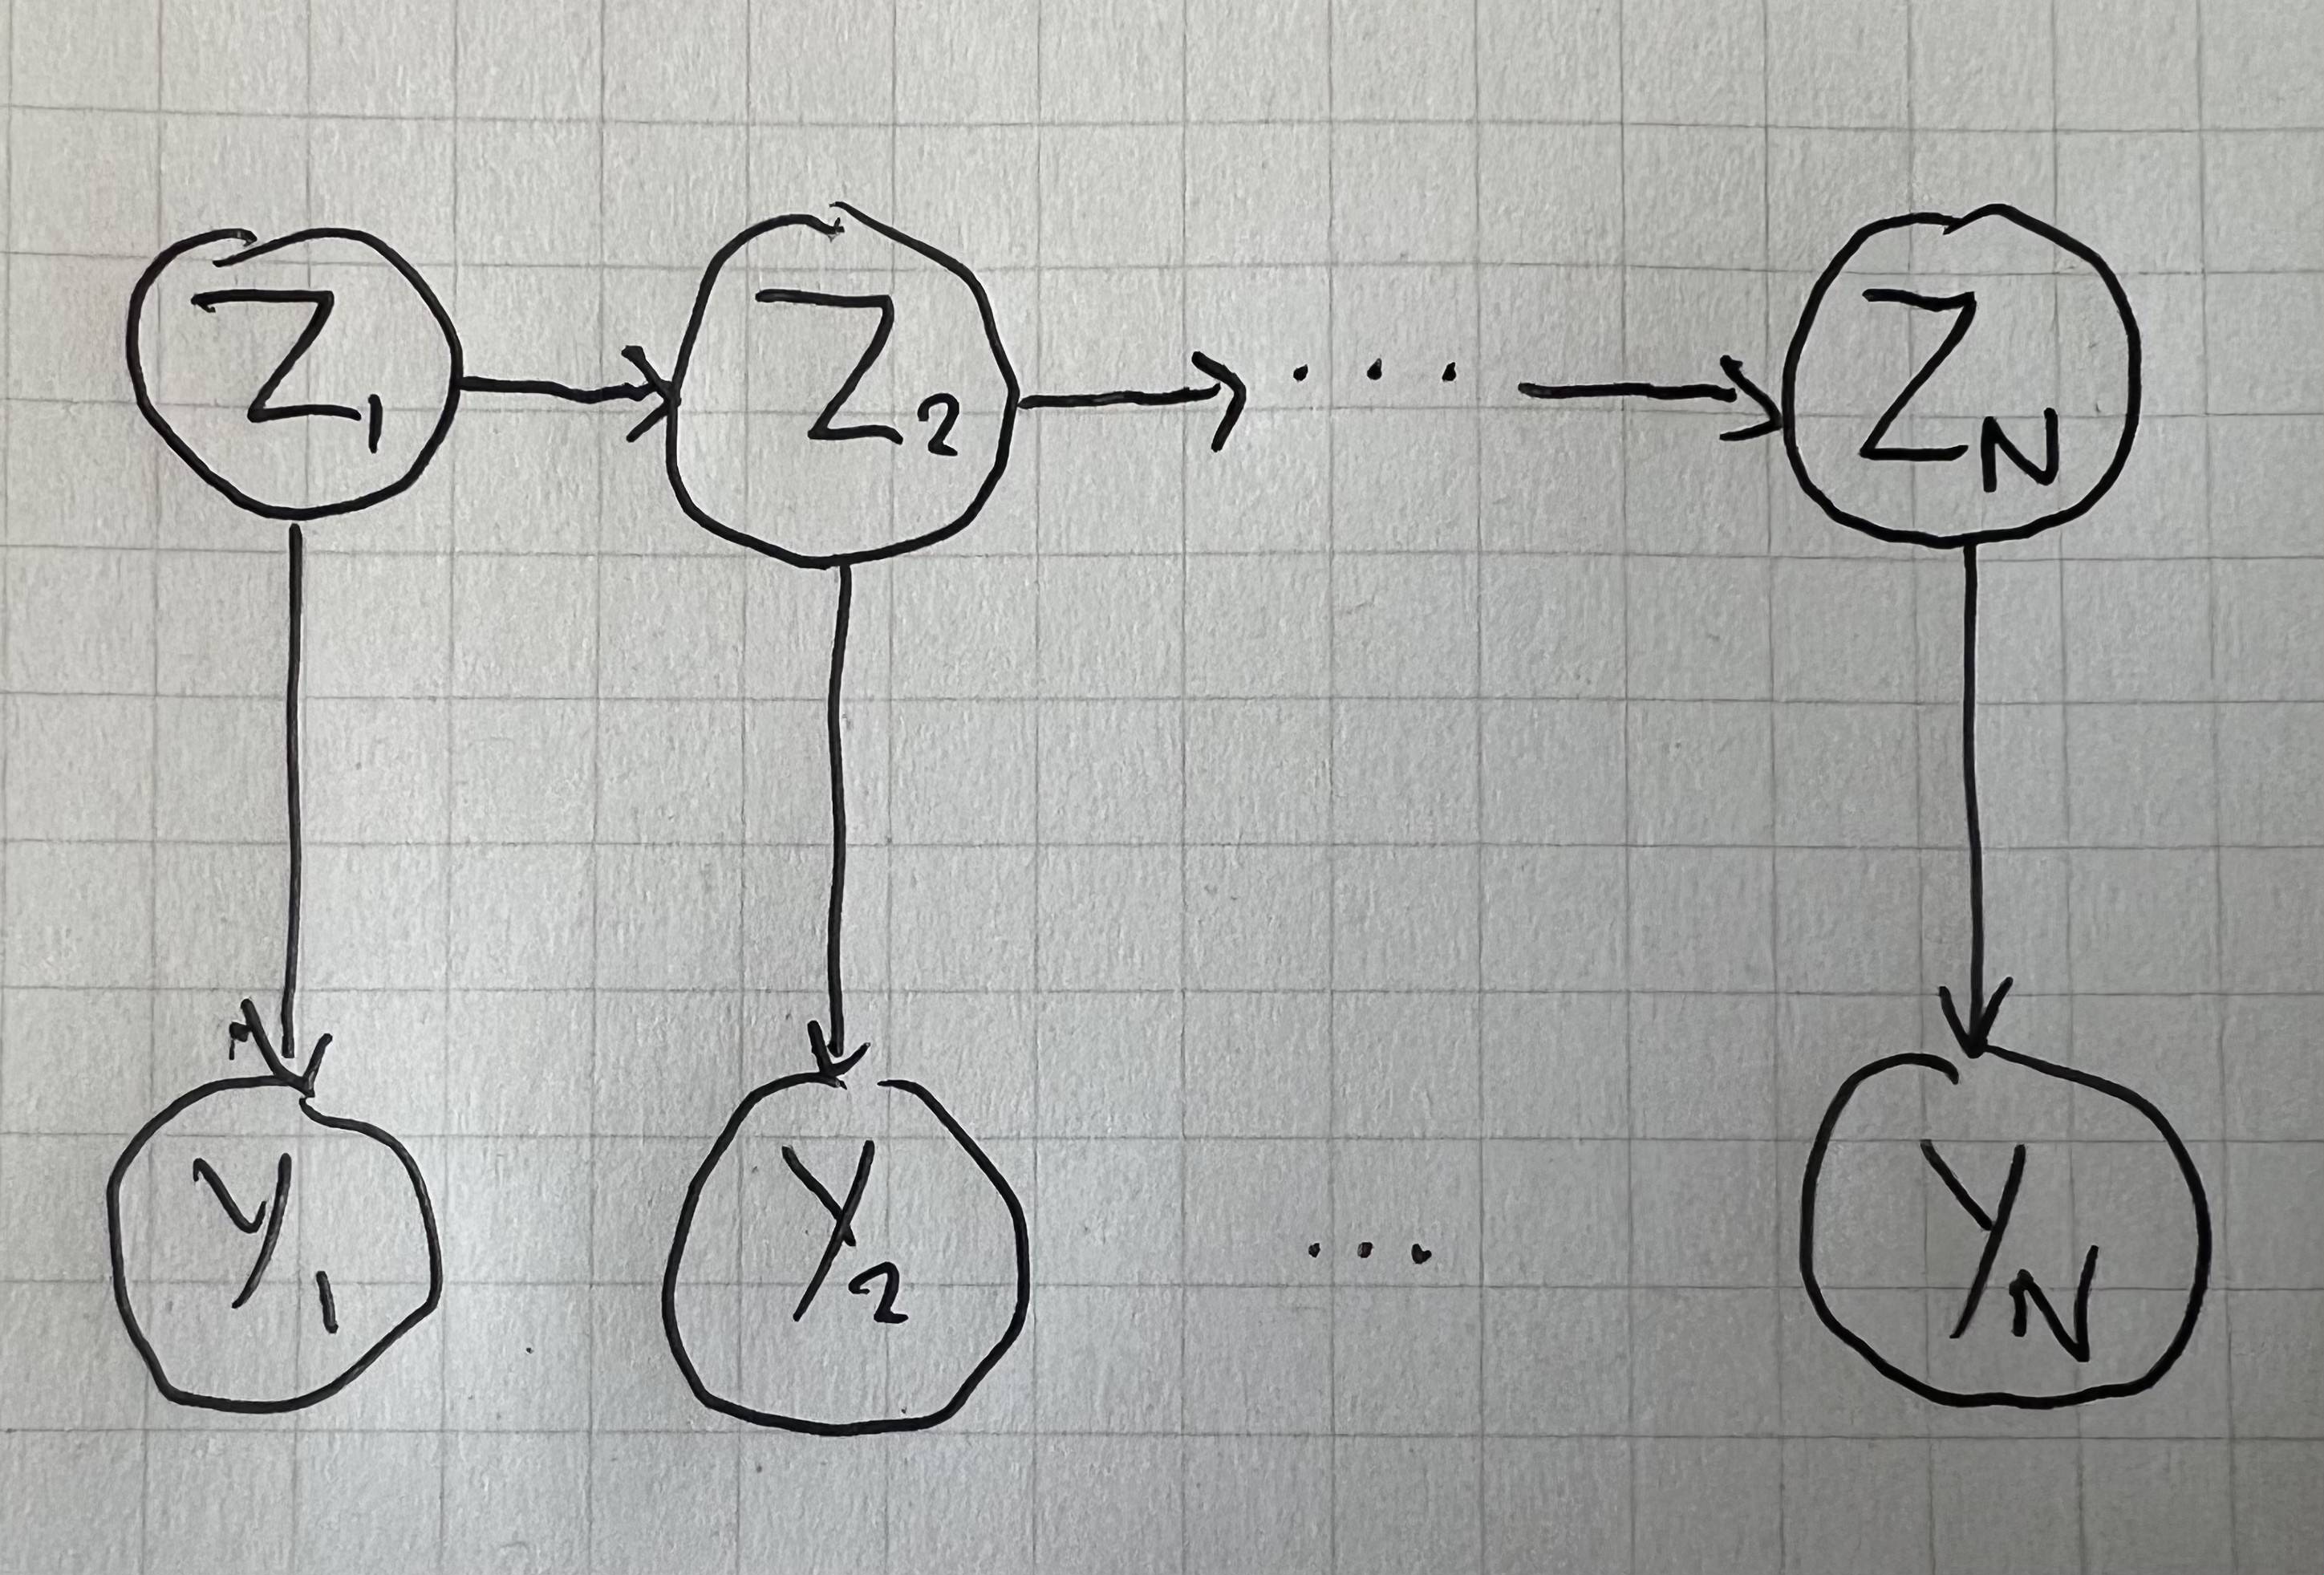 Z₁ Z₂ ... Z_N
Y₁ Y₂ ... Y_N